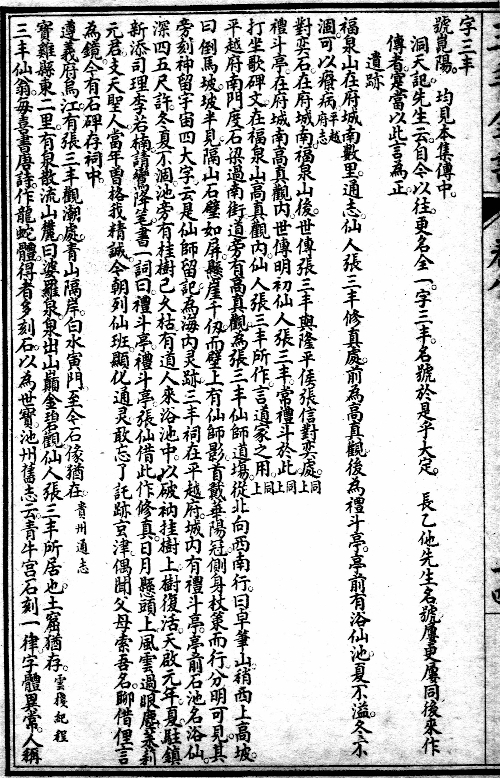 字三丰
號崑陽。均見本集傳中。
洞天記先生云自今以往更名全一字三丰名號於是乎大定。長乙他先生名號屢更屢同後來作
傳者實當以此言為正
遺跡
福泉山在府城南數里通志仙人張三丰修真處前為高真觀後為禮斗亭亭前有浴仙池夏不溢冬不
涸可以療病平越府志
對奕石在府城南福泉山後世傳張三丰與隆平侯張信對奕處同上
禮斗亭在府城南高真觀內世傳明初仙人張三丰常禮斗於此同上
打坐歌碑文在福泉山高真觀內仙人張三丰所作言道家之用同上
平越府南門度石梁過南街道旁有高真觀為張三丰仙師道場從北向西南行曰早筆山稍西上高坡
曰倒馬坡坡半見隔山石壁如屏懸崖千仞而壁上有仙師影首戴華陽冠側身杖策而行分明可見其
旁刻神留宇宙四大字云是仙師留記為海內灵跡三丰祠在平越府城內有禮斗亭亭前石池名浴仙
深四五尺許冬夏不涸池旁有桂樹已久枯有道人來浴池中以破衲挂樹上樹復活天啟元年夏駐鎮
新添司理李若楠請鸞降筆書一詞曰禮斗亭禮斗亭張仙借此作修真日月懸頭上風雲過眼塵業利
元君支天聖人當年曾格我精誠今朝列仙班顯化通灵敢忘了託跡玄津偶聞父母索吾名聊借俚言
為鐫今有石碑存祠中
遵義府烏江有張三丰觀潮處青山隔岸曰水寅門至今石像猶存貴州通志
寶雞縣東二里有泉散流山麓曰婆羅泉泉出山巔金碧觀仙人張三丰所居也土窟猶存雲棧紀程
三丰仙翁每喜書唐詩作龍蛇體得者多刻石以為世寶池州舊志云青牛宮石刻一律字體異常人稱